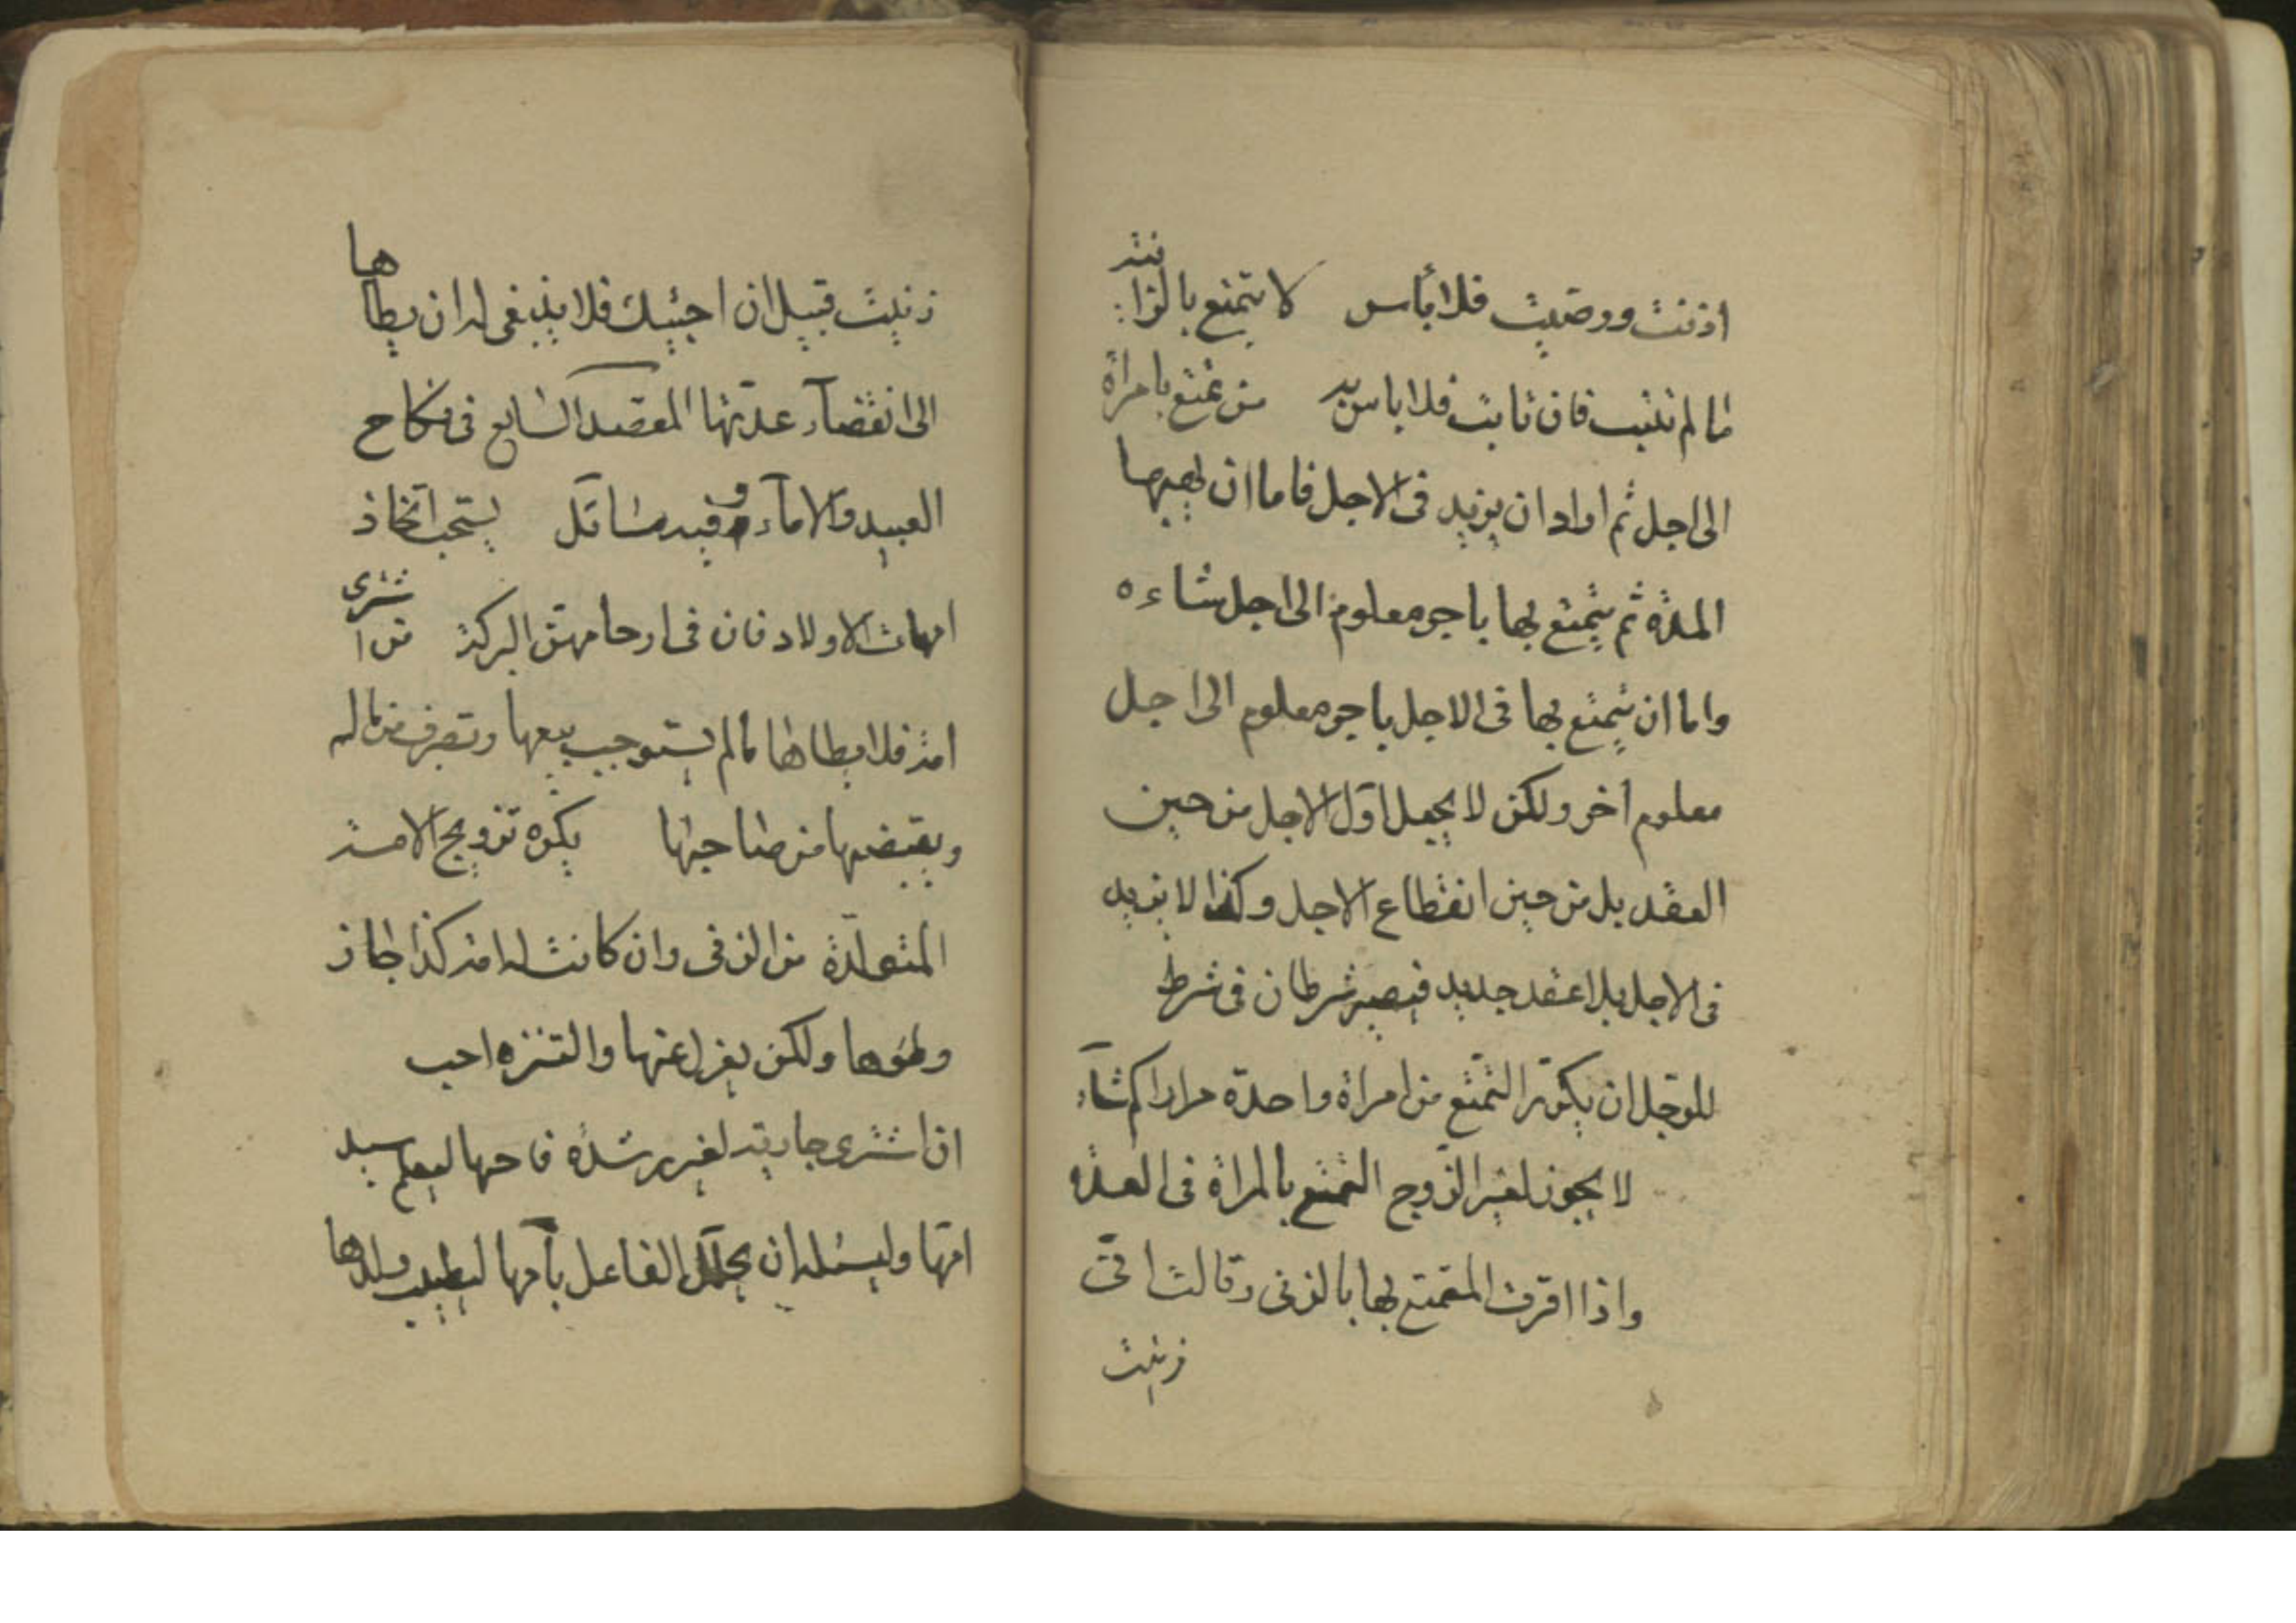 اذنت ورضيت فلا بأس لا يتمتع بالزانية
ما لم تتب فان تابت فلا باس به من تمتع بامراة
الى اجل ثم اراد ان يزيد فى الاجل فاما ان يهبها
المدة ثم يتمتع بها باجر معلوم الى اجل شاءه
واما ان يتمتع بها فى الاجل باجر معلوم الى اجل
معلوم آخر ولكن لا يجعل اول الاجل من حين
العقد بل من حين انقطاع الاجل وكذا لا يزيد
فى الاجل بلا عقد جديد فيصير شرطان فى شرط
للرجل ان يكرر التمتع من امراة واحدة مرارا كم شآء
لا يجوز لغير الزوج التمتع بالمراة فى العدة
واذا اقرت المتمتع بها بالزنى وقالت انى
زنيت
زنيت قبيل ان اجيئك فلا ينبغى له ان يطاها
الى انقضآء عدتها المقصد السابع فى نكاح
العبيد والامآء وفيه مسائل يستحب اتخاذ
امهات الاولاد فان فى ارحامهن البركة من اشترى
امة فلا يطاها ما لم يستوجب بيعها وتصرف من ماله
ويقبضها من صاحبها يكره تزويج الامة
المتولدة من الزنى وان كانت له امة كذا جاز
وطؤها ولكن يعزل عنها والتنزه احب
اذا اشترى جارية لغير رشدة فاحبها ليعلم سيد
امها وليسئله ان يحلل الفاعل بامها ليطيب ولدها